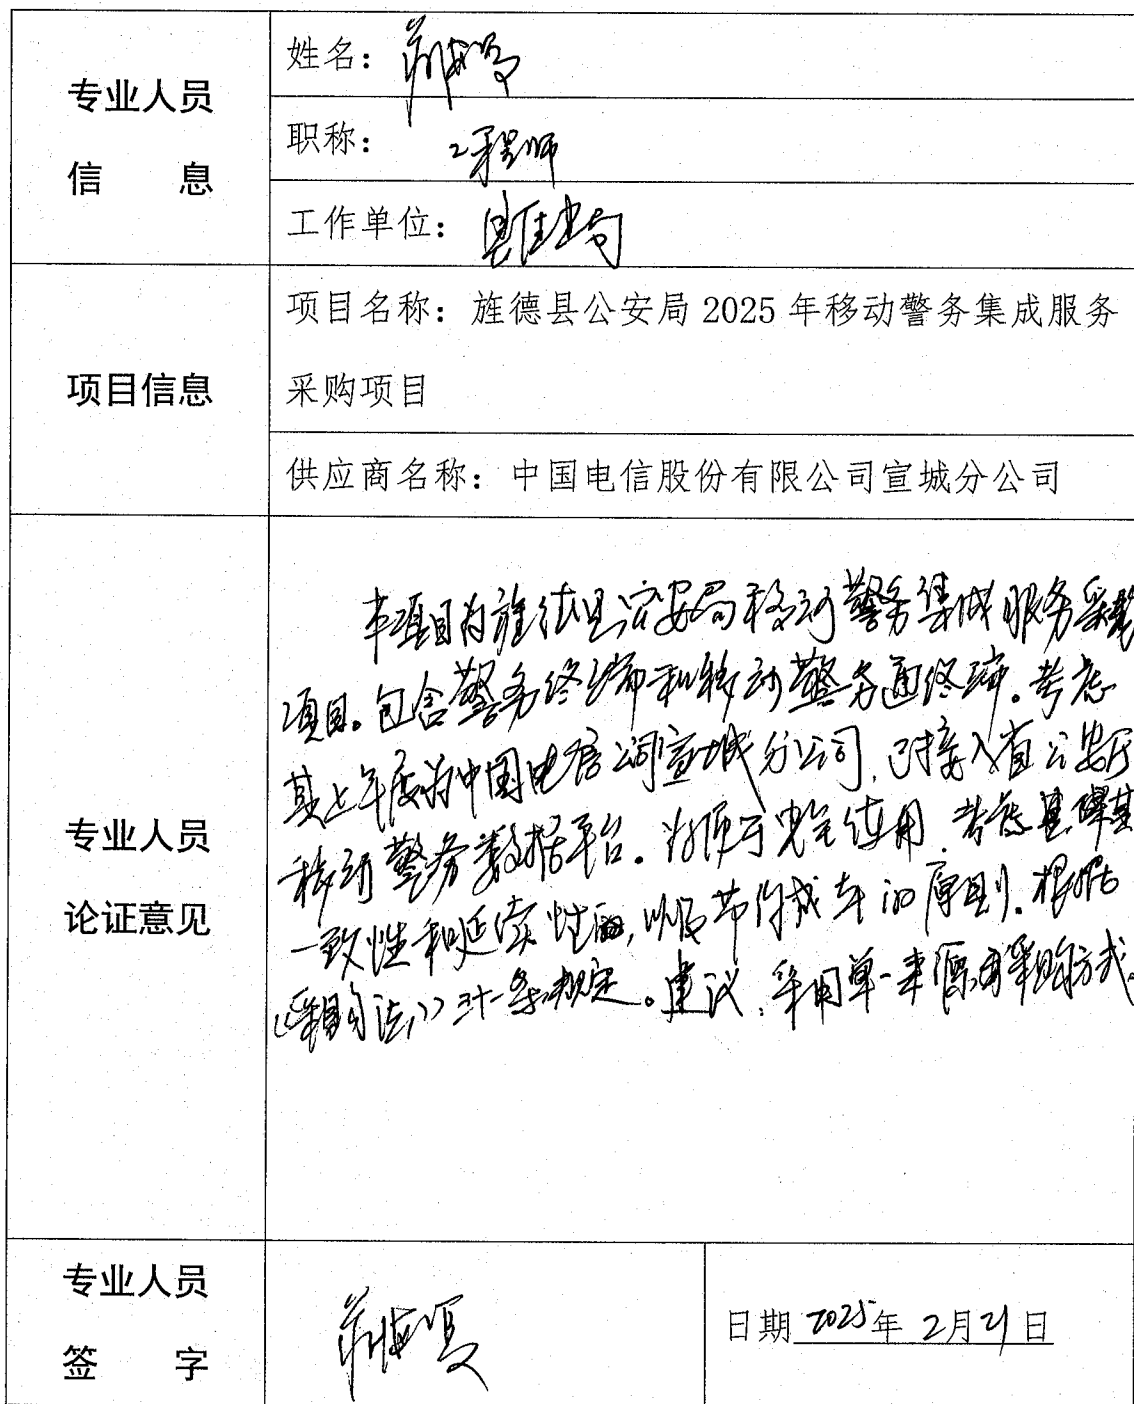 专业人员
信 息
姓名：
职称： 工程师
工作单位： 县住建局
项目信息
项目名称：旌德县公安局 2025 年移动警务集成服务
采购项目
供应商名称：中国电信股份有限公司宣城分公司
专业人员
论证意见
本项目为旌德县公安局移动警务集成服务采购
项目。包含警务终端和移动警务通终端。考虑
其上年度为中国电信公司宣城分公司，已接入省公安厅
移动警务数据平台。为便于 使用，考虑其
一致性和延续性，以及节约成本的原则。根据
《采购法》三十一条规定。建议：采用单一来源采购方式。
专业人员
签 字
日期 2025年 2月21日